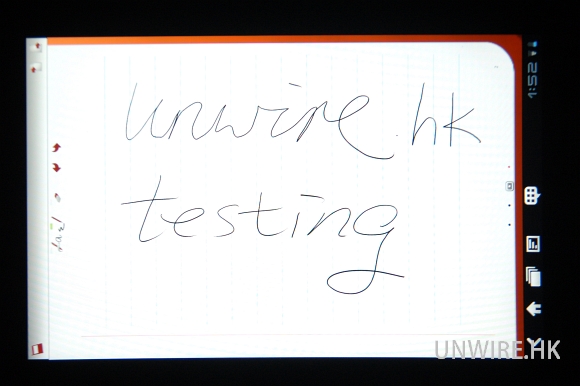 unwire.hk
testing
1:52
UNWIRE.HK